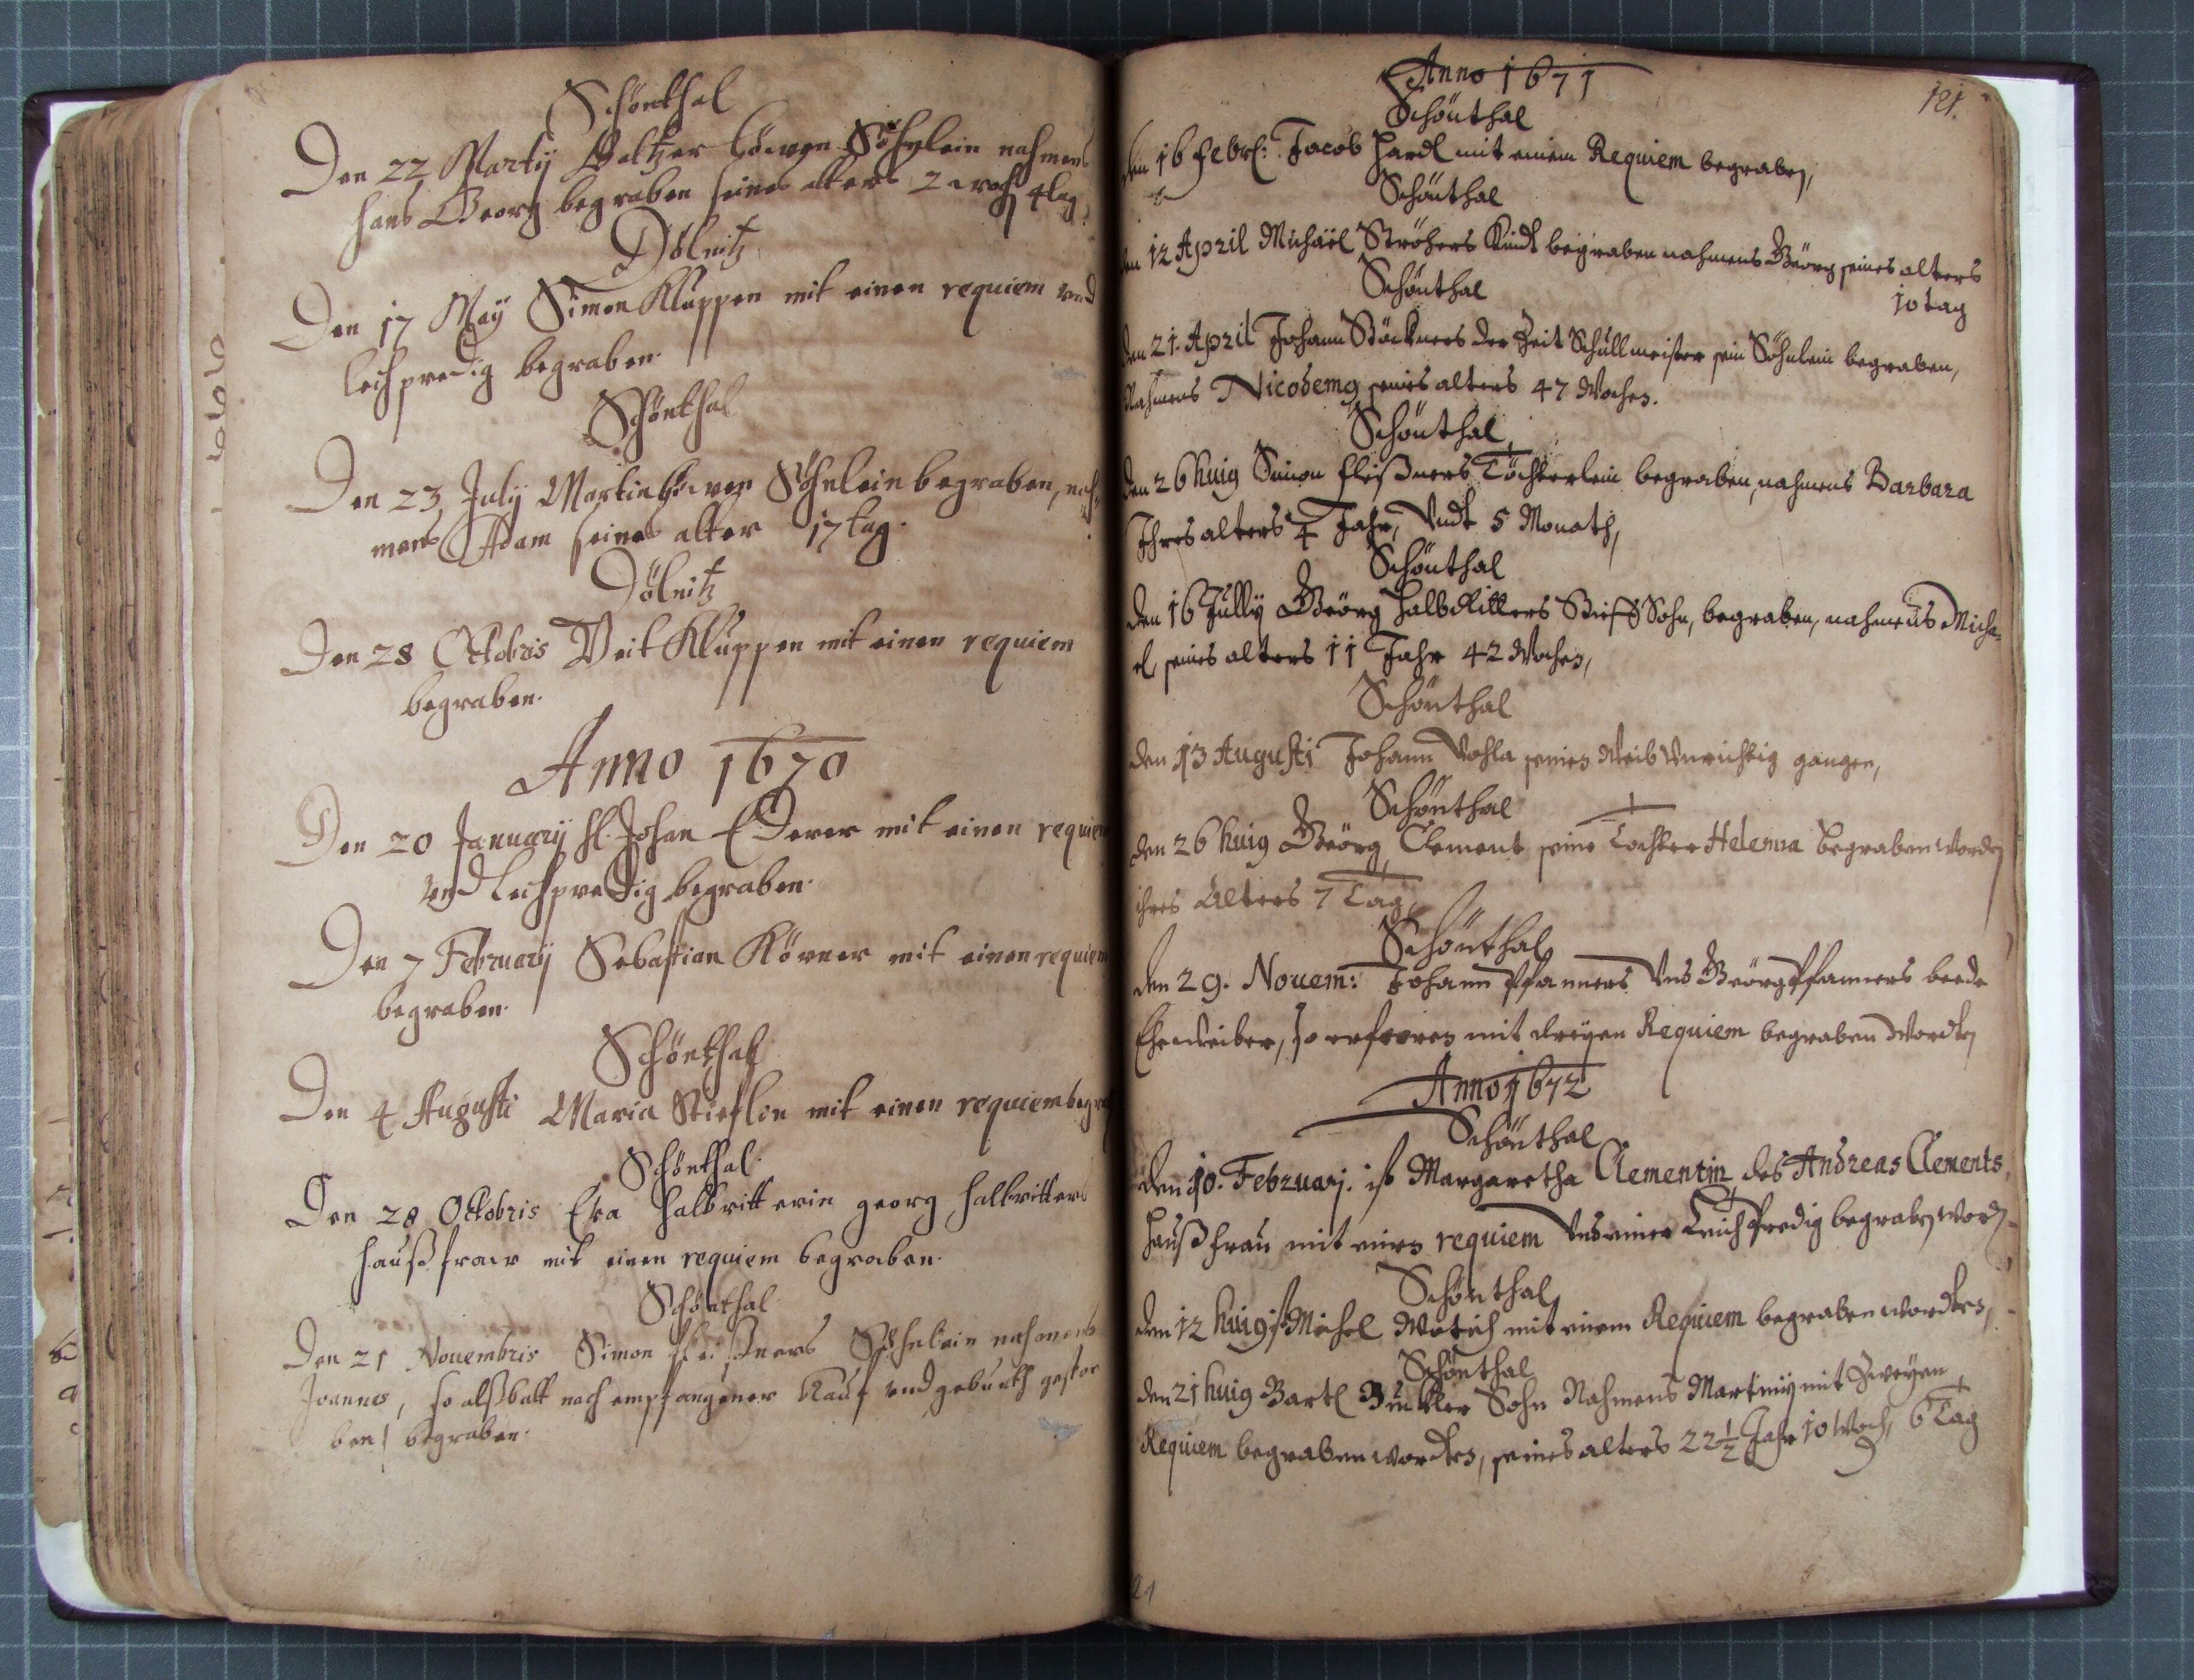 Schönthal
Den 22 Martij Baltzer Löwen Söhnlein nahmens
hans Georg begraben seines alters 2 woch 4 tag
Dölnitz
Den 17 May Simon Kluppen mit einen requiem vnd
leichpredig begraben.
Schönthal
Den 23 July Martin Löwen Söhnlein begraben, nah-
mens Adam seines alter 17 tag.
Dölnitz
Den 28 Octobris Veit Kluppen mit einen requiem
begraben.
Anno 1670
Den 20 January Johan Ederer mit einen requiem
vnd leichpredig begraben.
Den 7 February Sebastian Körner mit einen requiem
begraben.
Schönthal
Den 4 Augusti Maria Stieflin mit einen requiem begra
Schönthal.
Den 28 Octobris Eva halbritterin georg halbritters
haußfraw mit einen requiem begraben.
Schönthal
Den 21 Nouembris Simon fleißners Söhnlein nahmens
Joannes, so alßbalt nach empfangener tauf vnd geburth gestor
ben begraben.
121.
Anno 1671
Schönthal
den 16 Febr: Jacob Hardl mit einem Requiem begraben,
Schönthal
den 12 April Michaël Ströhers Kindt begraben nahmens Geörg seines alters
10 tag
Schönthal
den 21. April Johann Böckners der Zeit Schullmeister sein Söhnlein begraben,
Nahmens Nicodemg seines alters 47 Wochen.
Schönthal
den 26 huig Simon fleißners Töchterlein begraben, nahmens Barbara
Ihres alters 4 Jahr, Vndt 5 Monath,
Schönthal
den 16 Jully Geörg Halbritters Stieff Sohn, begraben, nahmens Micha-
el, seines alters 11 Jahr 42 Wochen,
Schönthal
den 13 Augusti Johann seinen Weib Vnrichtig gangen,
Schönthal
den 26 huig Geörg Clement seine Tochter Helenna begraben worden
ihres Alters 7 Tag,
Schönthal
den 29. Nouem: Johann Pfanners Vnd Geörg Pfanners beede
Eheweiber, so mit dreyen Requiem begraben worden
Anno 1672
Schönthal
den 10. Februarj. ist Margaretha Clementin, des Andreas Clements,
Haußfrau mit einen requiem Vnd einer Leichpredig begraben worden
Schönthal
den 12 huig ist Michel mit einem Requiem begraben worden,
Schönthal
den 21 huig Bartl Sohn Nahmens Martinij mit Zweyen
Requiem begraben worden, seines alters 22½ Jahr 10 Woch, 6 Tag